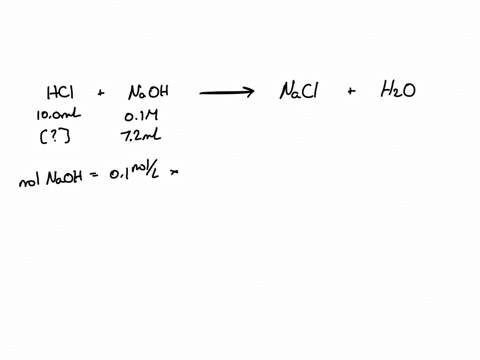 HCl + NaOH ⟶ NaCl + H₂O
10.0mL 0.1M
[?] 7.2mL
mol NaOH = 0.1 mol/L ×